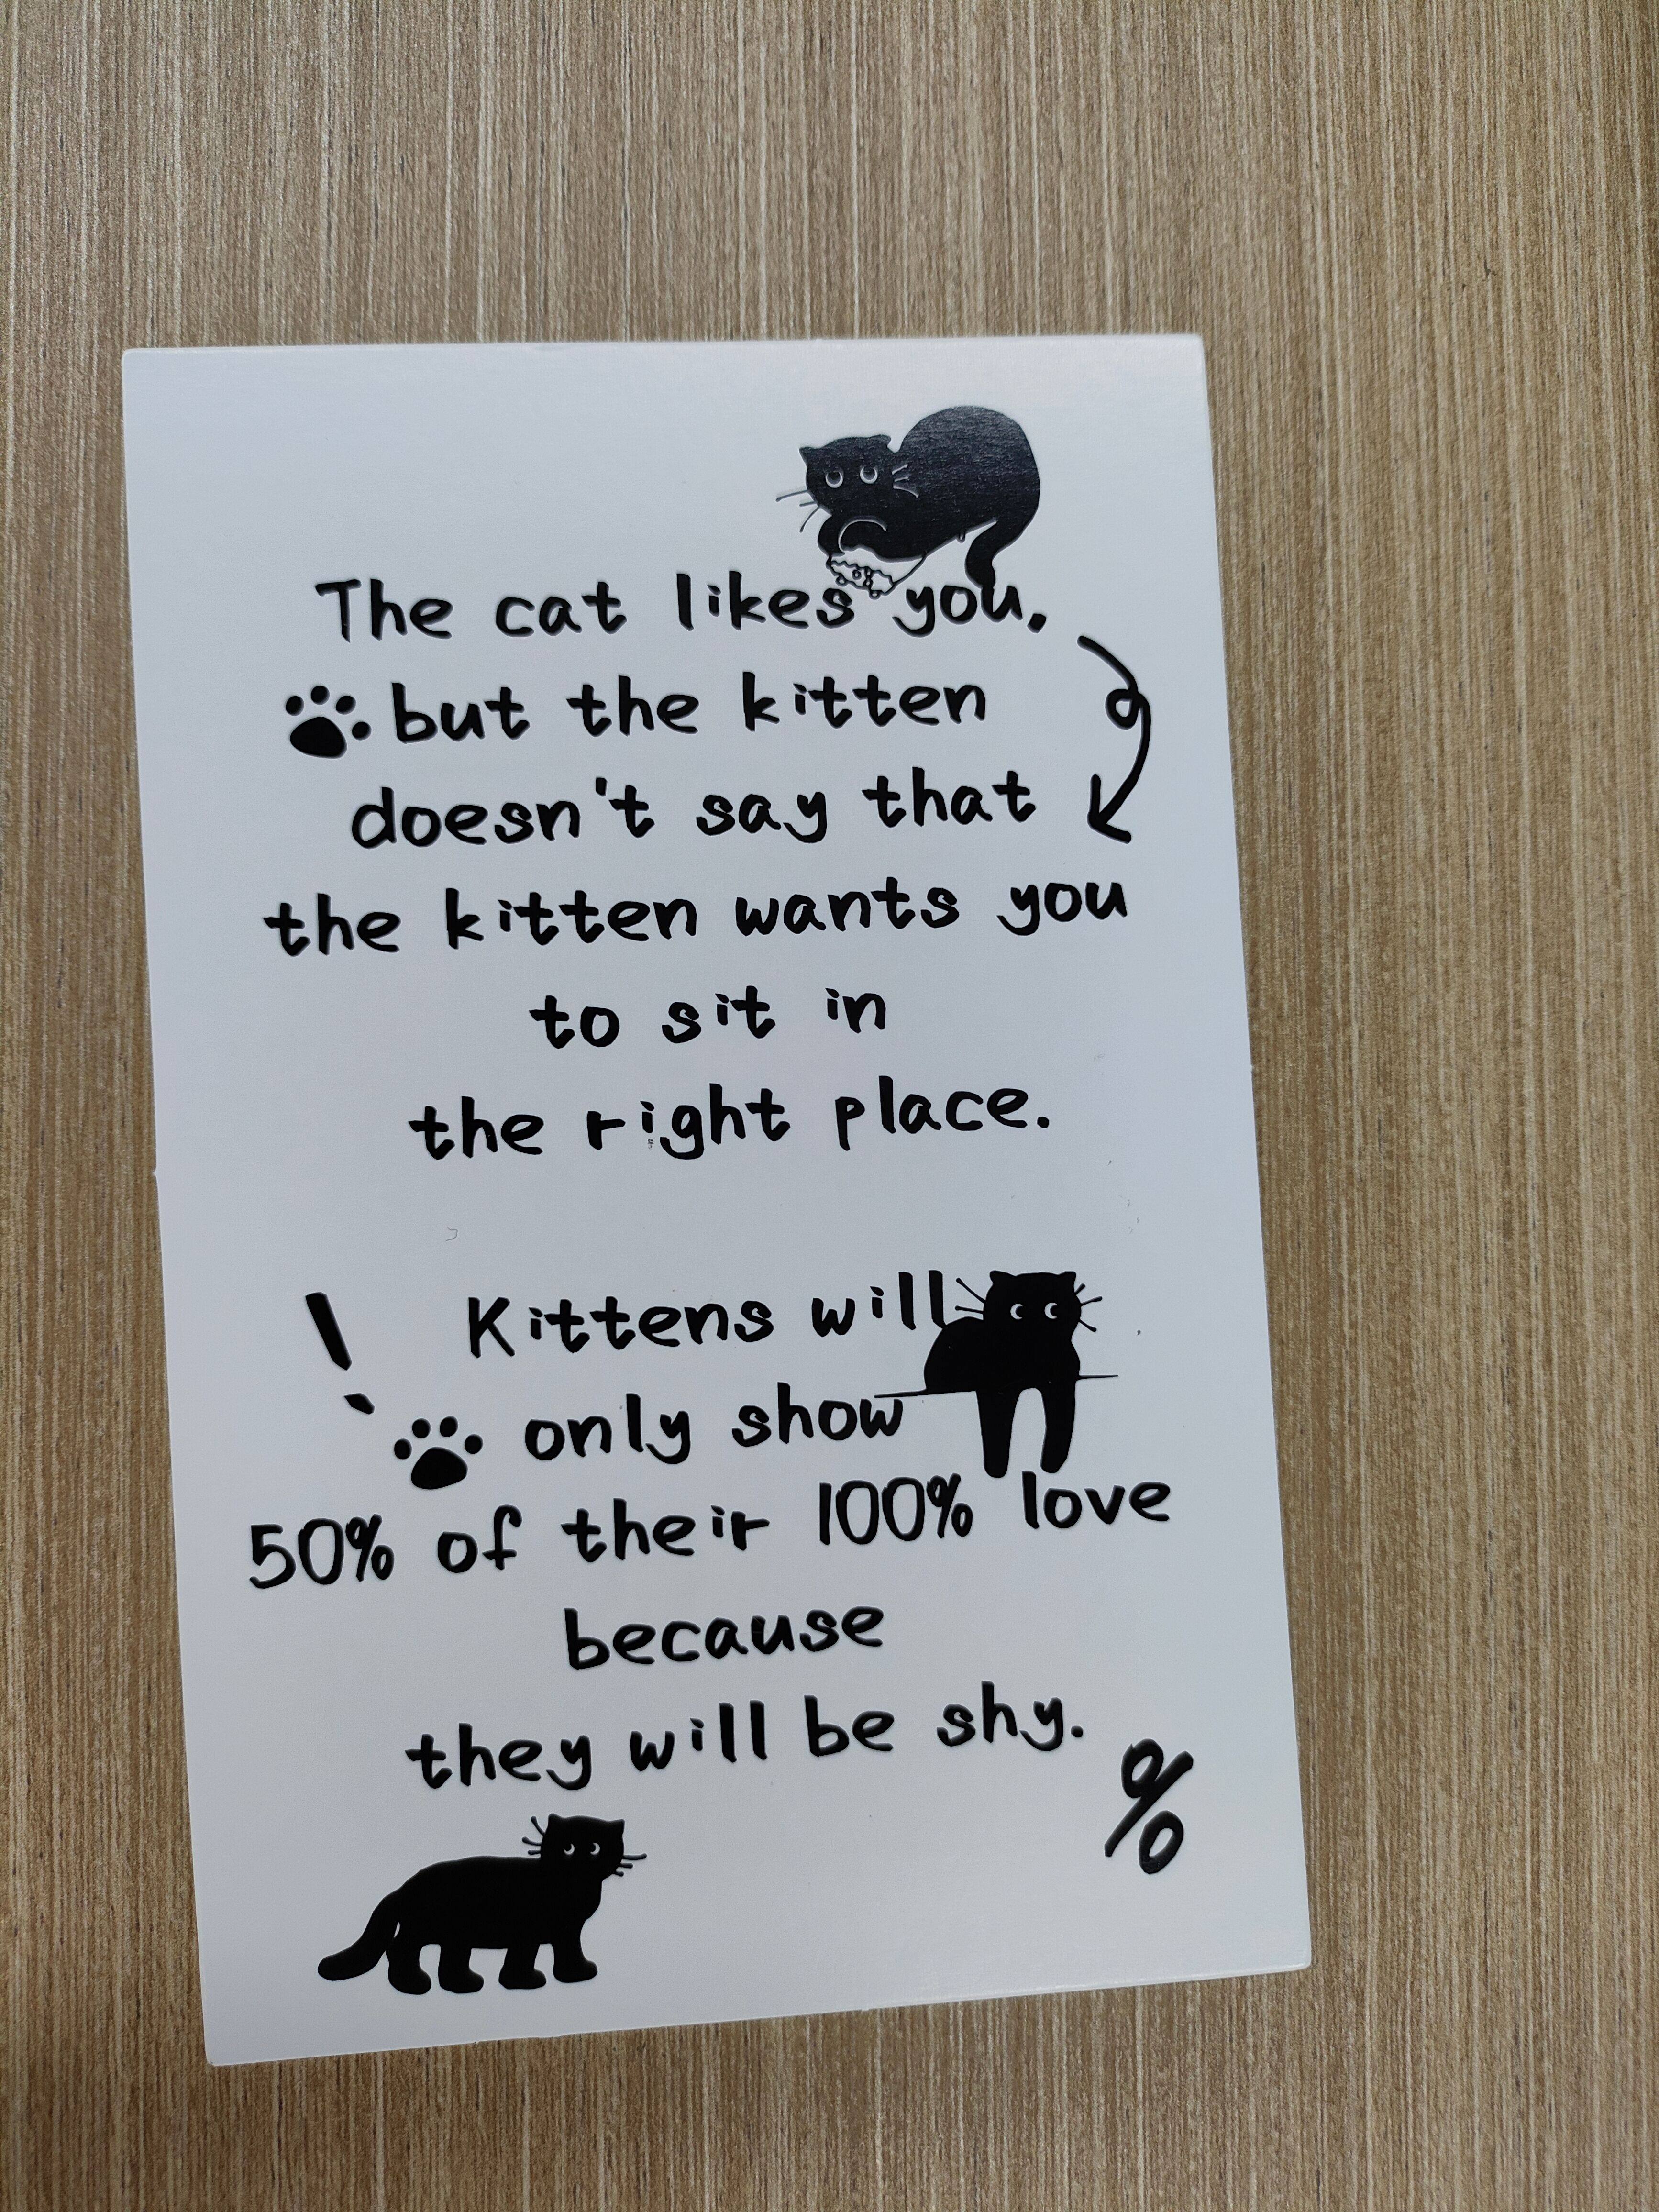 The cat likes you,
but the kitten
doesn't say that
the kitten wants you
to sit in
the right place.
! Kittens will
only show
50% of their 100% love
because
they will be shy.
%